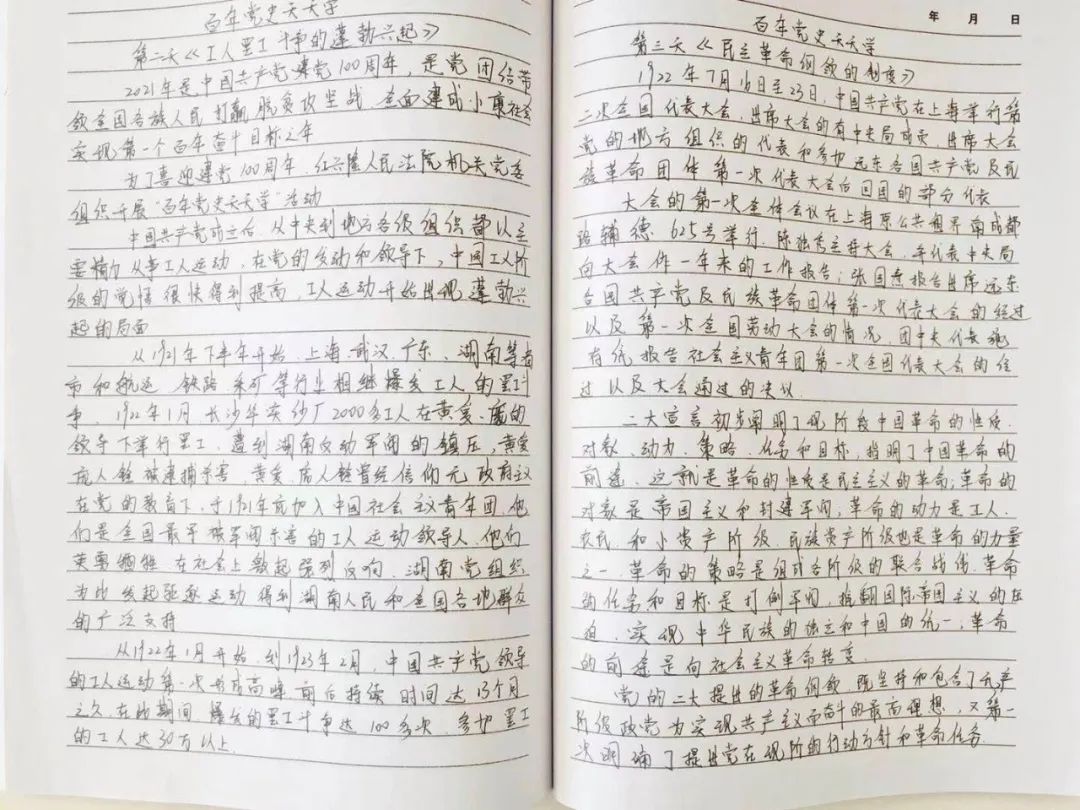 百年党史天天学
第二天《工人罢工斗争的蓬勃兴起》
2021年是中国共产党建党100周年，是党团结带
领全国各族人民打赢脱贫攻坚战，全面建成小康社会
实现第一个百年奋斗目标之年
为了喜迎建党100周年，红兴隆人民法院机关党委
组织开展"百年党史天天学"活动
中国共产党成立后，从中央到地方各级组织都以主
要精力从事工人运动，在党的发动和领导下，中国工人阶
级的觉悟很快得到提高，工人运动开始出现蓬勃兴
起的局面
从1921年下半年开始，上海、武汉、广东、湖南等省
市和航运、铁路、采矿等行业相继爆发工人的罢工斗
争，1922年1月长沙华实纱厂2000多工人在黄爱、庞的
领导下举行罢工，遭到湖南反动军阀的镇压，黄爱
庞人铨被逮捕杀害，黄爱、庞人铨曾经信仰无政府主义
在党的教育下，于1921年底加入中国社会主义青年团，他
们是全国最早被军阀杀害的工人运动领导人，他们
英勇牺牲，在社会上激起强烈反响，湖南党组织
为此发起驱逐运动得到湖南人民和全国各地群众
的广泛支持
从1922年1月开始，到1923年2月，中国共产党领导
的工人运动第一次形成高峰，前后持续时间达13个月
之久，在此期间，爆发的罢工斗争达100多次，参加罢工
的工人达30万以上.
年 月 日
百年党史天天学
第三天《民主革命纲领的制度》
1922年7月16日至23日，中国共产党在上海举行第
二次全国代表大会，出席大会的有中央局成员，出席大会
党的地方组织的代表和参加远东各国共产党及民
族革命团体第一次代表大会后回国的部分代表
大会的第一次全体会议在上海原公共租界南成都
路辅德 625号举行，陈独秀主持大会，并代表中央局
向大会作一年来的工作报告；张国焘报告出席远东
各国共产党及民族革命团体第一次代表大会的经过
以及第一次全国劳动大会的情况，团中央代表施
存统报告社会主义青年团第一次全国代表大会的经
过以及大会通过的决议.
二大宣言初步阐明了现阶段中国革命的性质、
对象、动力、策略、任务和目标，指明了中国革命的
前途，这就是革命的性质是民主主义的革命；革命的
对象是帝国主义和封建军阀，革命的动力是工人、
农民、和小资产阶级，民族资产阶级也是革命的力量
之一，革命的策略是组成各阶级的联合战线，革命
的任务和目标是打倒军阀，推翻国际帝国主义的压
迫，实现中华民族的独立和中国的统一；革命
的前途是向社会主义革命转变
党的二大提出的革命纲领，既坚持和包含了无产
阶级政党为实现共产主义而奋斗的最高理想，又第一
次明确了提出党在现阶的行动方针和革命任务.